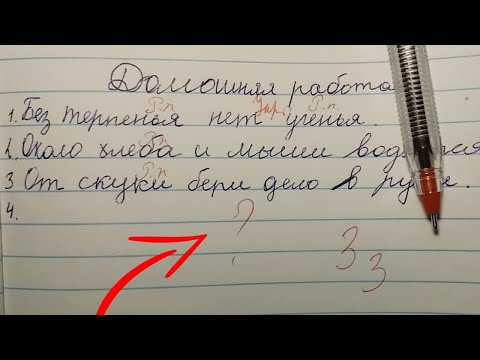 Домошняя работа
Р.п. Удр. Р.п.
1. Без терпенья нет ученья.
Р.п.
2. Около хлеба и мыши водятся
Р.п.
3 От скуки бери дело в руки.
4.
?
3
3